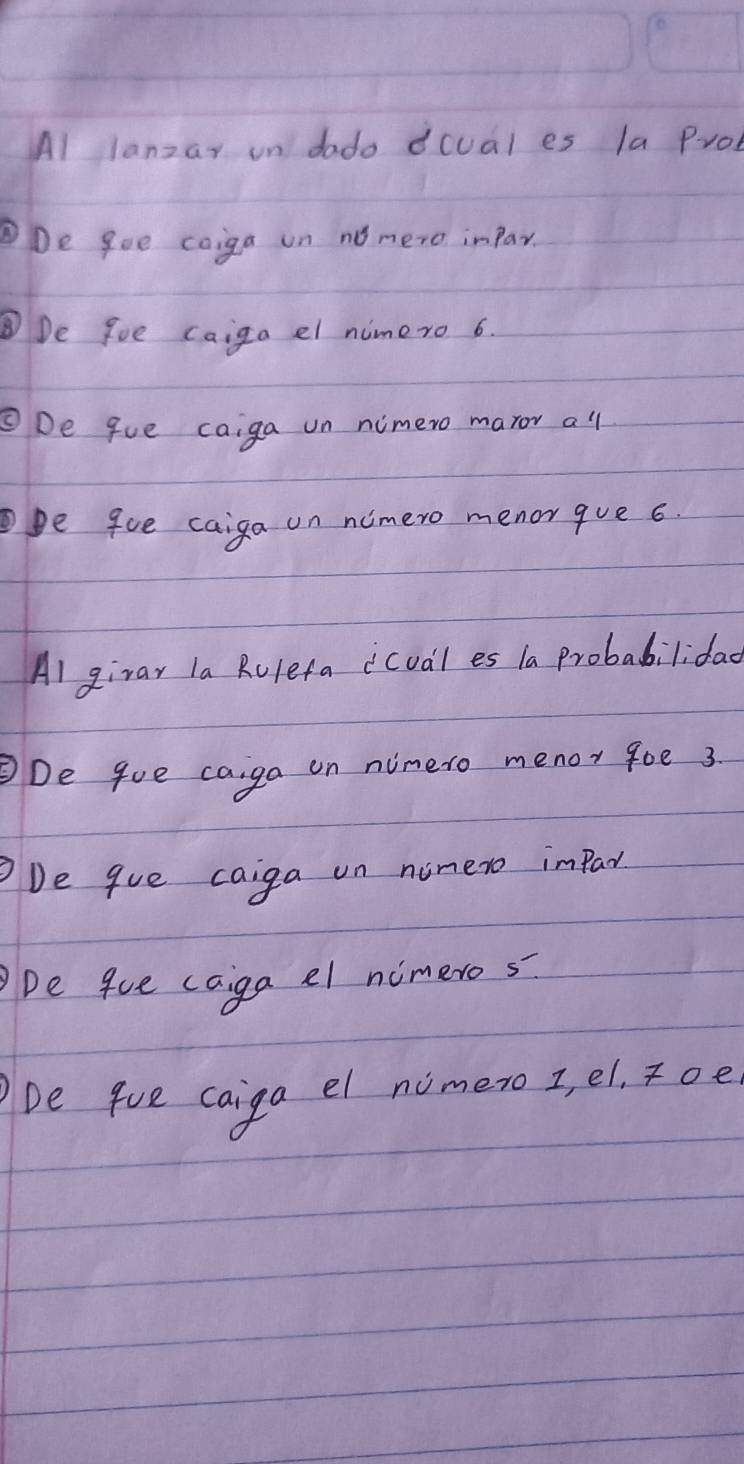 Al lanzar un dado ¿cuál es la Prob
Ⓐ De que caiga un número impar.
Ⓑ De que caiga el número 6.
Ⓒ De que caiga un número mayor a 4
Ⓓ De que caiga un número menor que 6.
Al girar la Ruleta ¿cuál es la probabilidad
Ⓔ De que caiga un número menor que 3.
De que caiga un número impar
De que caiga el número 5.
De que caiga el número 1, el, 7 o el